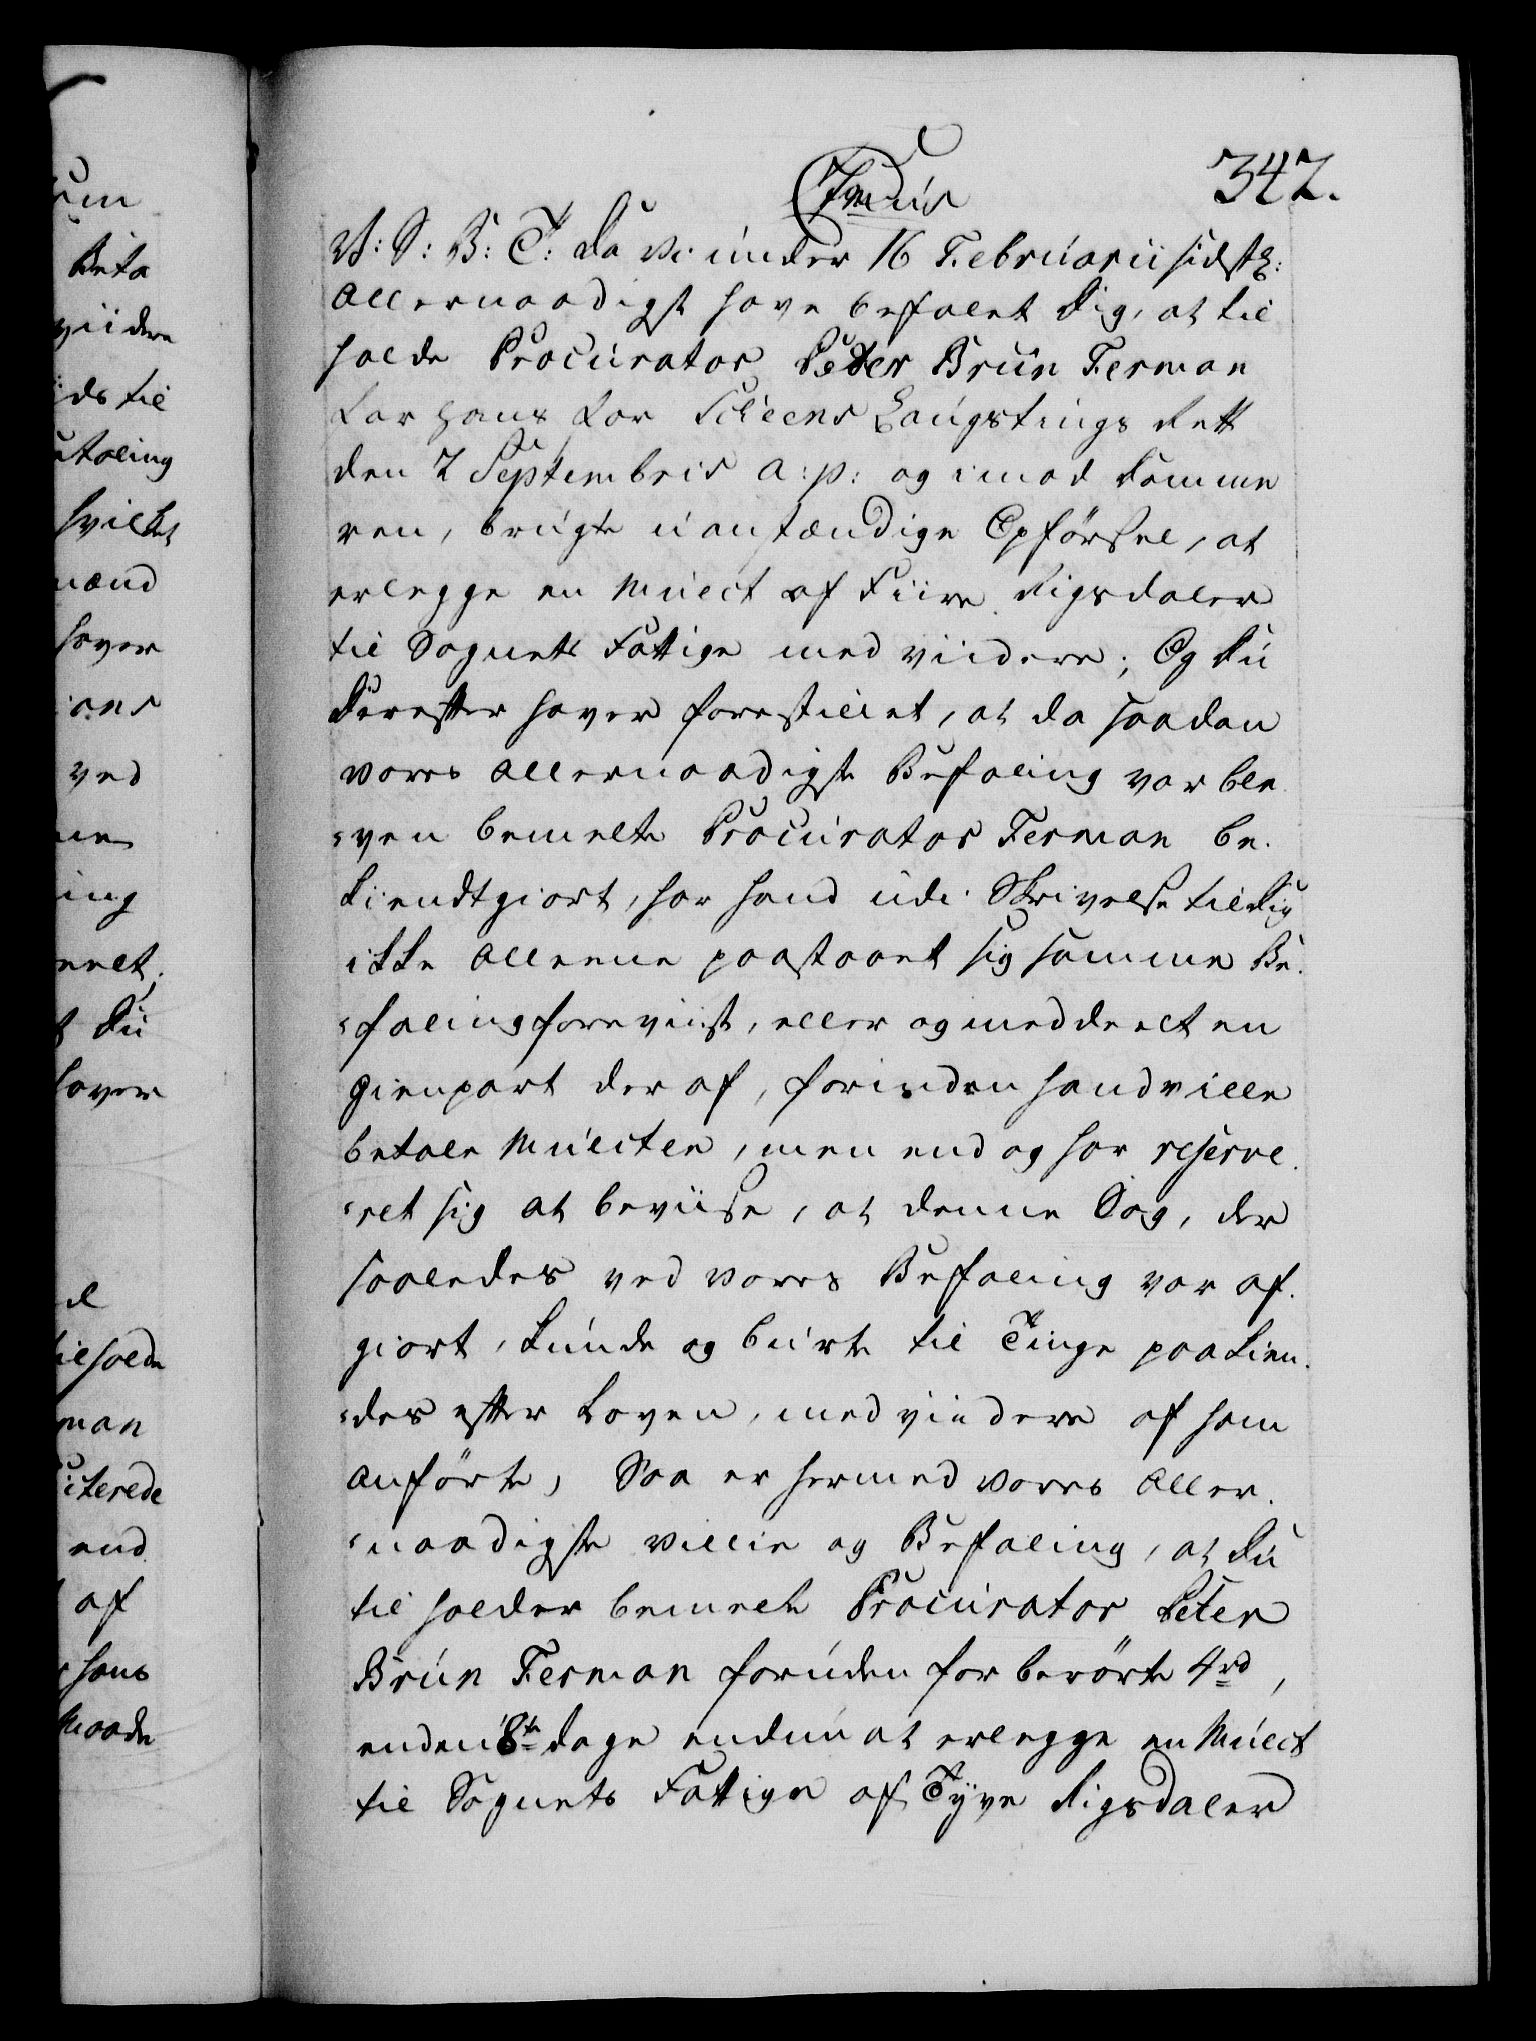 342.
V: S: B: T: Da vi under 16 Februarii sidstl:
allernaadigst have befalet Dig, at til
holde Procurator Peter Brün Ferman
for hans for Scheens Laugstings Rett
den 7 Septembris a: p: og imod Domme
ren, brugte uanstændige Opförsel, at
erlegge en Mulct af Fiire Rigsdaler
til Sognets Fattige med viidere; Og Du
derefter haver forestillet, at da saadan
vores allernaadigste Befaling var ble
-ven bemelte Procurator Ferman be-
kiendtgiort, har hand udi Skrivelse til Dig
ikke alleene paastaaet sig samme Be-
-faling foreviist, eller og meddeelt en
gienpart der af, forinden hand ville
betale Mulcten, men end og har reserve-
-ret sig at beviise, at denne Sag, der
saaledes ved vores Befaling var af-
giort, kunde og burte til Tinge paakien-
-des efter Loven, med viidere af ham
anförte, Saa er hermed vores aller-
-naadigste villie og Befaling, at Du
til holder bemelte Procurator Peter
Brün Ferman foruden forberörte 4 rd,
inden 8te dage endnu at erlegge en Mulct
til Sognets Fattige af Tyve Rigsdaler